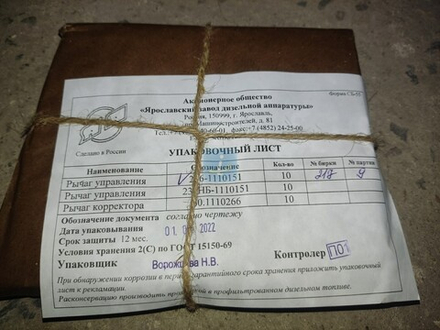 Форма СЬ-02
Акционерное общество
«Ярославский завод дизельной аппаратуры»
Россия, 150999, г. Ярославль,
Машиностроителей, д. 81
факс +7 (4852) 24-25-00
Сделано в России
УПАКОВОЧНЫЙ ЛИСТ
Наименование Обозначение Кол-во № бирки № партии
Рычаг управления 10 217 9
Рычаг управления 10
Рычаг корректора 10
Обозначение документа согласно чертежу
Дата упаковывания 2022
Срок защиты 12 мес.
Условия хранения 2(С) по ГОСТ 15150-69
Упаковщик Н.В. Контролер ПО
При обнаружении коррозии в период гарантийного срока хранения приложить упаковочный
лист к рекламации.
Расконсервацию производить в профильтрованном дизельном топливе.